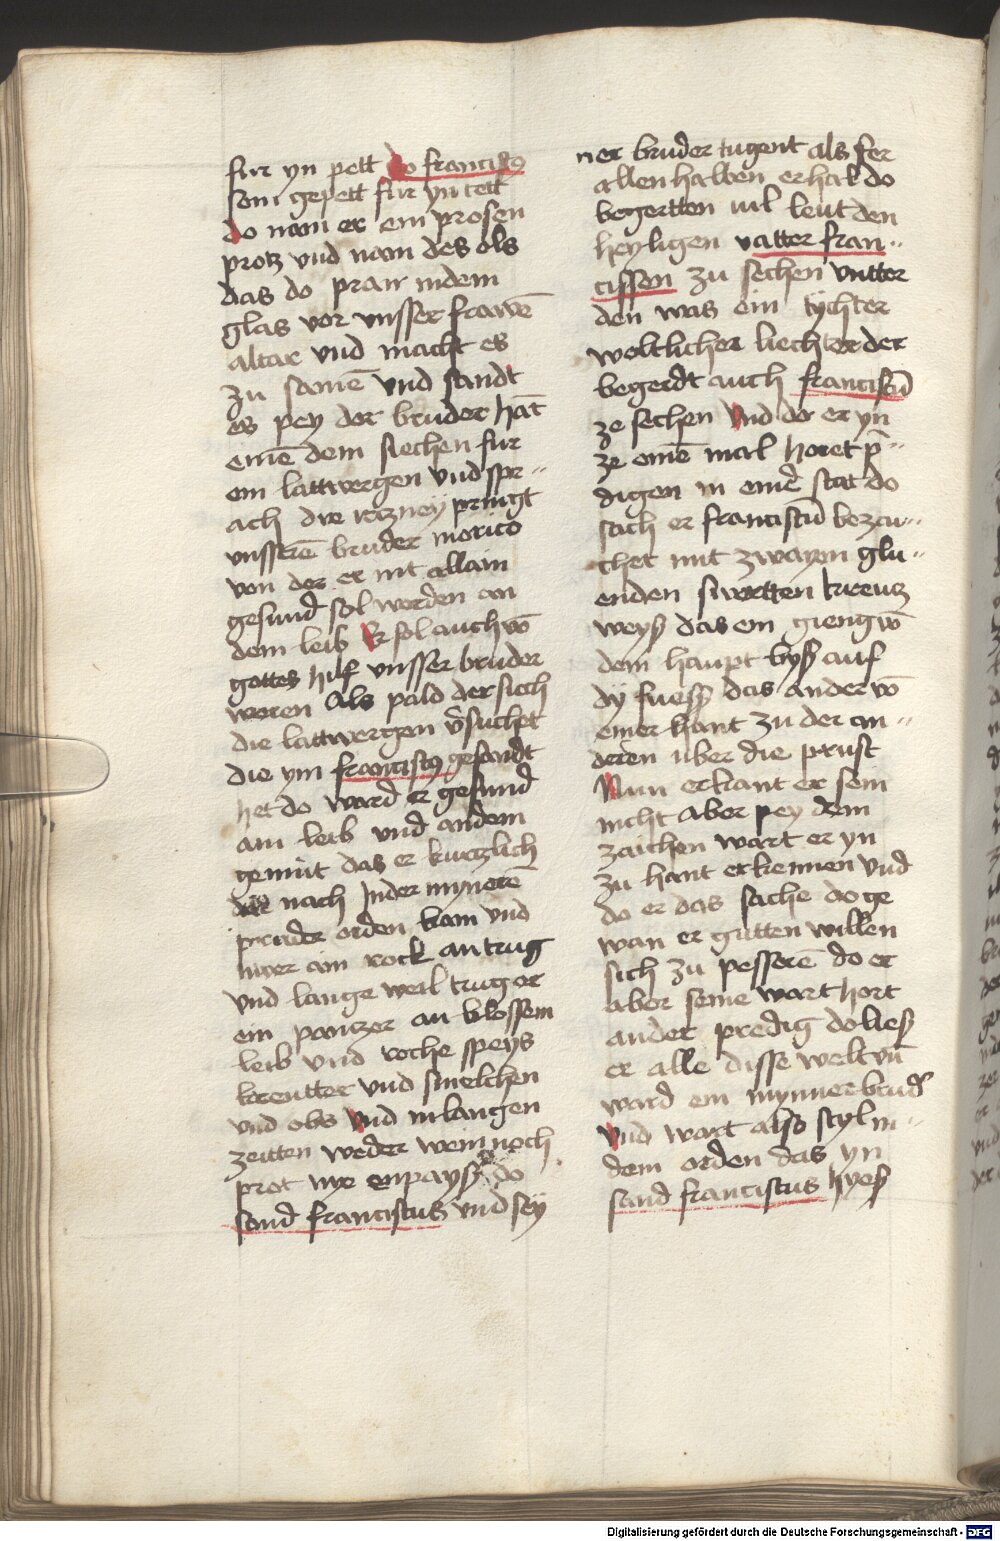 fur yn pett do franciscꝫ
sein gepett fur yn tett
do nam er ein prosen
protz vnd nam des ols
das do pran indem
glas vor vnsser frawē
altar vnd macht es
zu samē vnd sandt
es pey der bruder hāt
einē dem siechen fur
ein lattwergen vnd spr-
ach die ertzney pringt
vnsserē bruder morico
von der er nit allain
gesund sol werden an
dem leib Er sol auch vō
gottes hilf vnsser bruder
weren Als pald der siech
die lattwergen v̄suchet
die ym franciscꝫ gesandt
het do ward er gesund
am leib vnd andem
gemut das er kurczlich
dar nach Inder mynerē
pruder orden kam vnd
nwer ain rock an trug
vnd lange weil trug er
ein pantzer an blossem
leib vnd roche speys
kreutter vnd smelchen
vnd obs vnd in langen
zeitten weder wein noch
prot nye enpayß do
sand franciscus vnd sey
ner bruder tugent als fer
allenhalben erhal do
begertten vil leut den
heyligen vatter fran-
cissen zu sechen vntter
den was ein tychter
weltlicher liechter der
begerdt auch franciscū
ze sechen vnd do er yn
ze einē mal horet p̄-
digen in einer stat do
sach er franciscū bezai-
chet mit zwayen glu-
enden swertten kreutz
weyß das ein gieng vō
dem haupt byß auf
dy fuess das ander vō
einer hant zu der an-
deren uber die prust
Nun erkant er sein
nicht aber pey dem
zaichen wart er yn
zu hant erkennen vnd
do er das sache do ge
wan er gutten willen
sich zu pesserē do er
aber seine wart hort
ander predig do ließ
er alle disse welt vn̄
ward ein mynner brud̄
vnd wart also styl in-
dem orden das yn
sand franciscus hyeß
Digitalisierung gefördert durch die Deutsche Forschungsgemeinschaft - DFG